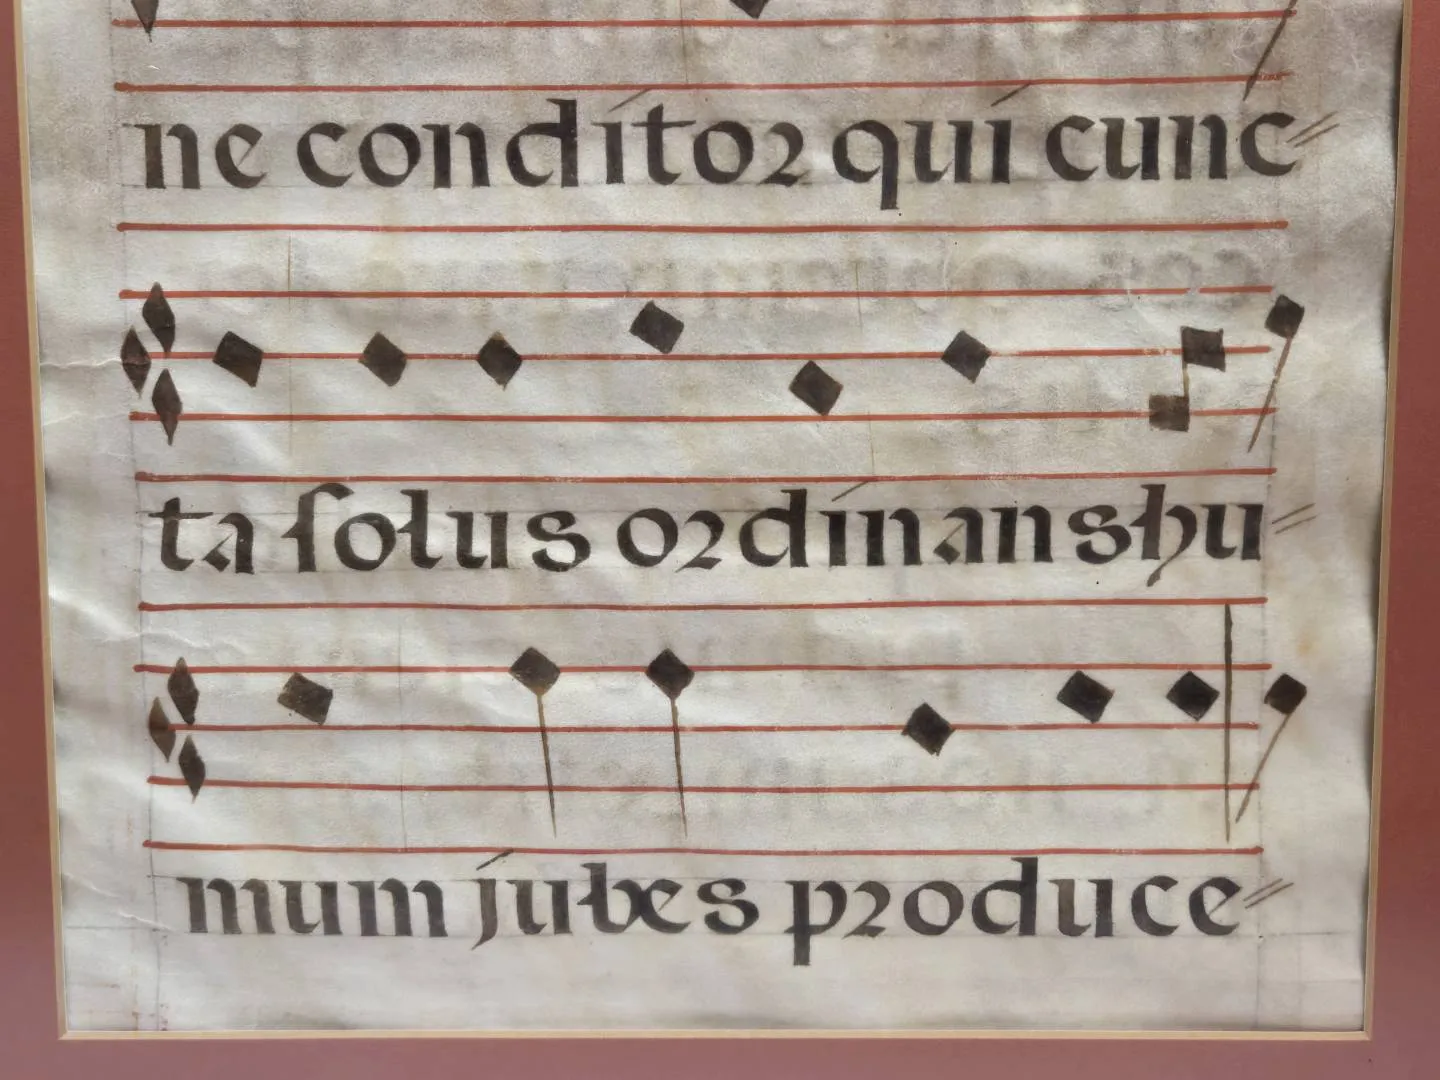 ne conditor qui cunc//
ta ſolus ordinans hu//
mum jubes produce//